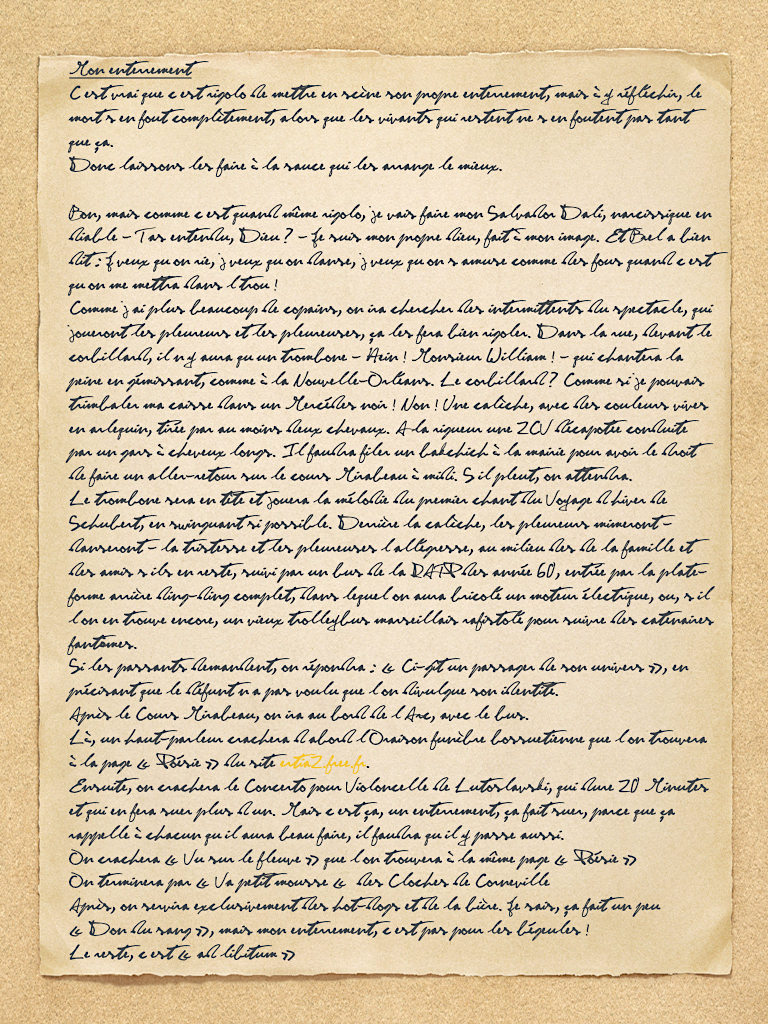 Mon enterrement
C'est vrai que c'est rigolo de mettre en scène son propre enterrement, mais à y réfléchir, le
mort s'en fout complètement, alors que les vivants qui restent ne s'en foutent pas tant
que ça.
Donc laissons les faire à la sauce qui les arrange le mieux.
Bon, mais comme c'est quand même rigolo, je vais faire mon Salvador Dali, narcissique en
diable – T'as entendu, Dieu ? – Je suis mon propre dieu, fait à mon image. Et Brel a bien
dit : J'veux qu'on rie, j'veux qu'on danse, j'veux qu'on s'amuse comme des fous quand c'est
qu'on me mettra dans l'trou !
Comme j'ai plus beaucoup de copains, on ira chercher des intermittents du spectacle, qui
joueront les pleureurs et les pleureuses, ça les fera bien rigoler. Dans la rue, devant le
corbillard, il n'y aura qu'un trombone – Hein ! Monsieur William ! – qui chantera la
peine en gémissant, comme à la Nouvelle-Orléans. Le corbillard ? Comme si je pouvais
trimbaler ma caisse dans un Mercédès noir ! Non ! Une calèche, avec des couleurs vives
en arlequin, tirée par au moins deux chevaux. A la rigueur une 2CV décapotée conduite
par un gars à cheveux longs. Il faudra filer un bakchich à la mairie pour avoir le droit
de faire un aller-retour sur le cours Mirabeau à midi. S'il pleut, on attendra.
Le trombone sera en tête et jouera la mélodie du premier chant du Voyage d'hiver de
Schubert, en swinguant si possible. Derrière la calèche, les pleureurs mimeront –
danseront – la tristesse et les pleureuses l'allégresse, au milieu des de la famille et
des amis s'ils en reste, suivi par un bus de la RATP des année 60, entrée par la plate-
forme arrière ding-ding complet, dans lequel on aura bricolé un moteur électrique, ou, s'il
l'on en trouve encore, un vieux trolleybus marseillais rafistolé pour suivre des caténaires
fantômes.
Si les passants demandent, on répondra : « Ci-gît un passager de son univers », en
précisant que le défunt n'a pas voulu que l'on divulgue son identité.
Après le Cours Mirabeau, on ira au bord de l'Arc, avec le bus.
Là, un haut-parleur crachera d'abord l'Oraison funèbre bossuetienne que l'on trouvera
à la page « Poésie » du site ertia2.free.fr.
Ensuite, on crachera le Concerto pour Violoncelle de Lutoslavski, qui dure 20 Minutes
et qui en fera suer plus d'un. Mais c'est ça, un enterrement, ça fait suer, parce que ça
rappelle à chacun qu'il aura beau faire, il faudra qu'il y passe aussi.
On crachera « Vu sur le fleuve » que l'on trouvera à la même page « Poésie »
On terminera par « Va petit mousse « des Cloches de Corneville
Après, on servira exclusivement des hot-dogs et de la bière. Je sais, ça fait un peu
« Don du sang », mais mon enterrement, c'est pas pour les bégueules !
Le reste, c'est « ad libitum »